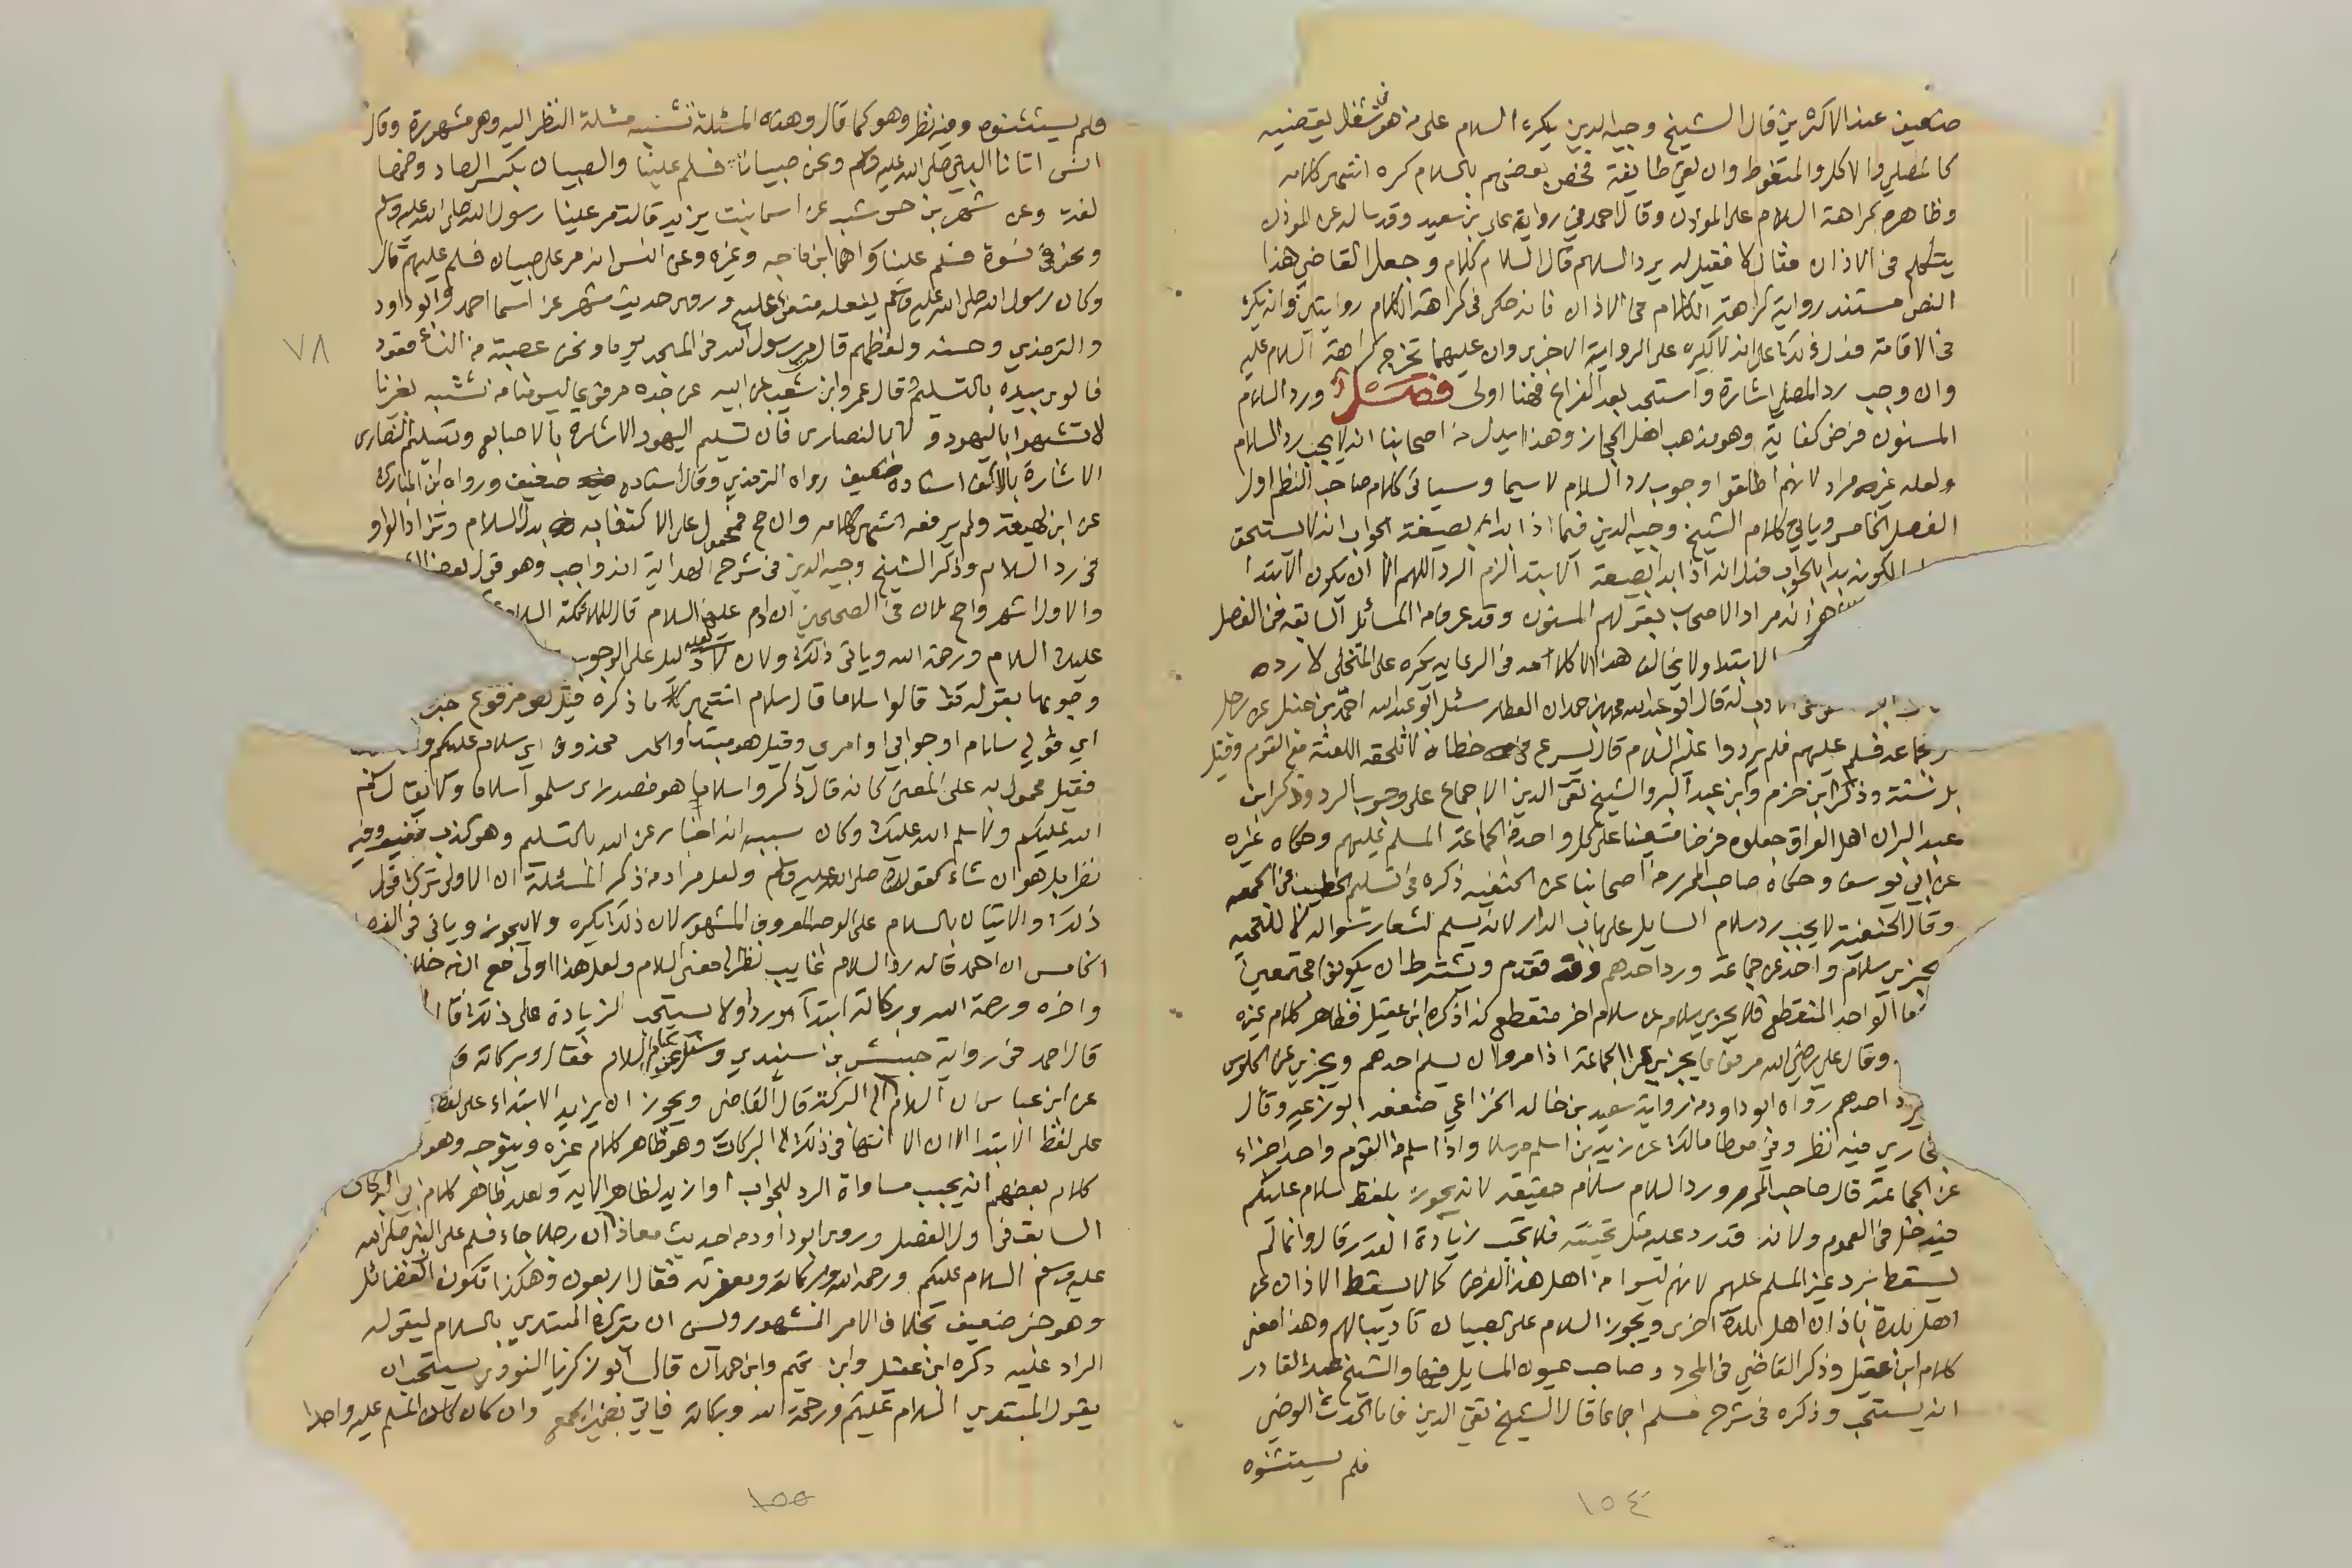 ضعيف عند الاكثرين قال الشيخ وجيه الدين يكره السلام على من هو في شغل يقضيه
كالمصلي والاكل والمتغوط وان لقي طايفة فخص بعضهم بالسلام كره انتهى كلامه
وظاهره كراهة السلام على المؤذن وقال احمد في رواية علي بن سعيد وقد ساله عن الموذن
يتكلم في الاذان فقال لا فقيل له يرد السلام قال السلام كلام وجعل القاضي هذا
النص مستند رواية كراهة الكلام في الاذان فانه حكى في كراهة الكلام روايتين وانه يكره
في الاقامة فدل ذلك على انه لا يكره على الرواية الاخرى وان عليهما تخرج كراهة السلام عليه
وان وجب رد المصلي اشارة واستحب بعد الفراغ فهنا اولى فصل ورد السلام
المسنون فرض كفاية وهو مذهب اهل الحجاز وهذا يدل من اصحابنا انه لا يجب رد السلام
ولعله غير مراد لانهم اطلقوا وجوب رد السلام لا سيما وسياتي كلام صاحب النظم اول
الفصل الخامس وياتي كلام الشيخ وجيه الدين فيما اذا بدا بصيغة الجواب انه لا يستحق
لكونه بدا بالجواب فدل انه اذا بدا بصيغة الابتدا لزم الرد اللهم الا ان يكون الابتدا
انه مراد الاصحاب بقولهم المسنون وقد عرف من المسائل السابقة في الفصل
الابتدا ولا يخالف هذا الا كلامه في الرعاية يكره على المتخلي لا رده
له قال ابو عبدالله محمد بن حمدان العطار سئل ابو عبدالله احمد بن حنبل عن رجل
جماعة فسلم عليهم فلم يردوا عليه السلام قال يسرع في خطاه لا تلحقه اللعنة مع القوم وقيل
بل سنة وذكر ابن حزم وابن عبد البر والشيخ تقي الدين الاجماع على وجوب الرد وذكر ابن
عبد البر ان اهل العراق جعلوه فرضا متعينا على كل واحد من الجماعة المسلم عليهم وحكاه غيره
عن ابي يوسف وحكاه صاحب المحرر من اصحابنا عن الحنفية ذكره في تسليم الخطيب في الجمعه
وقال الحنفية لا يجب رد سلام السايل على باب الدار لانه يسلم لشعار سواله لا للتحيه
يجزي سلام واحد من جماعة ورد احدهم وقد تقدم ويشترط ان يكونوا مجتمعين
فاما الواحد المنقطع فلا يجزي سلامه عن سلام اخر منقطع كذا ذكره ابن عقيل فظاهر كلام غيره
وقال علي رضي الله مرفوعا يجزي عن الجماعة اذا مروا ان يسلم احدهم ويجزي عن الجلوس
يرد احدهم رواه ابو داود من رواية سعيد بن خالد الخزاعي ضعفه ابو زرعه وقال
البخاري فيه نظر وفي موطا مالك عن زيد بن اسلم مرسلا واذا سلم من القوم واحد اجزاء
عن الجماعة قال صاحب المحرر ورد السلام سلام حقيقة لانه يجوز بلفظ سلام عليكم
فيدخل في العموم ولانه قد رد عليه مثل تحيته فلا تجب زيادة القدر قال وانما لم
يسقط برد غير المسلم عليهم لانهم ليسوا من اهل هذا الفرض كما لا يسقط الاذان عن
اهل بلدة باذان اهل بلدة اخرى ويجوز السلام على الصبيان تاديبا لهم وهذا معنى
كلام ابن عقيل وذكر القاضي في المجرد وصاحب عيون المسايل فيها والشيخ عبد القادر
انه يستحب وذكره في شرح مسلم اجماعا قال الشيخ تقي الدين فاما الحدث الوضي
فلم يستثنوه
١٥٤
فلم يستثنوه وفيه نظر وهو كما قال وهذه المسئلة تشبه مسئلة النظر اليه وهي مشهورة وقال
انس اتانا النبي صلى الله عليه وسلم ونحن صبيان فسلم علينا والصبيان بكسر الصاد وضمها
لغة وعن شهر بن حوشب عن اسما بنت يزيد قالت مر علينا رسول الله صلى الله عليه وسلم
ونحن في نسوة فسلم علينا رواهما ابن ماجه وغيره وعن انس انه مر على صبيان فسلم عليهم قال
وكان رسول الله صلى الله عليه وسلم يفعله متفق عليه وروى حديث شهر عن اسما احمد وابو داود
والترمذي وحسنه ولفظهم قال مر رسول الله في المسجد يوما ونحن عصبة من النساء قعود
٧٨
فالوى بيده بالتسليم قال عمرو ابن شعيب عن ابيه عن جده مرفوعا ليس منا من تشبه بغيرنا
لا تشبهوا باليهود ولا بالنصارى فان تسليم اليهود الاشارة بالاصابع وتسليم النصارى
الاشارة بالاكف اسناده ضعيف رواه الترمذي وقال اسناده ضعيف ورواه ابن المبارك
عن ابن لهيعة ولم يرفعه انتهى كلامه وان صح فمحمول على الاكتفا به بدل السلام وتزاد الواو
في رد السلام وذكر الشيخ وجيه الدين في شرح الهداية انه واجب وهو قول بعض
والاول اشهر واصح لان في الصحيحين ان ادم عليه السلام قال للملائكة السلام
عليك السلام ورحمة الله وياتي ذلك ولان لا دليل على الوجوب
وجوبها بقوله تعا قالوا سلاما قال سلام انتهى ما ذكره قيل هو مرفوع خبر
اي قولي سلام او جوابي او امري وقيل هو مبتدا والخبر محذوف اي سلام عليكم
فقيل محمول به على المعنى كانه قال ذكروا سلاما هو مصدر اي سلموا سلاما ولا يقال سلم
الله عليكم ولا سلم الله عليك وكان سببه انه اخبار عن الله بالتسليم وهو كذب وفيه
نظر بل هو انشاء كقوله صلى الله عليه وسلم ولعل مراد من ذكر المسئلة ان الاولى ترك قول
ذلك والاتيان بالسلام على الوجه المعروف المشهور لان ذلك يكره ولا يجوز وياتي في الفصل
الخامس ان احمد قال رد السلام غايب نظرا لمعنى السلام ولعل هذا اولى مع انه خلاف
واخره ورحمة الله وبركاته ابتدا وردا ولا يستحب الزيادة على ذلك
قال احمد في رواية حبيش بن سندي وسئل عن تمام السلام فقال وبركاته
عن ابن عباس ان السلام الى البركة قال القاضي ويجوز ان يزيد الابتداء على لفظ
على لفظ الابتدا الا ان الانتها في ذلك الى البركات وهو ظاهر كلام غيره ويتوجه وهو
كلام بعضهم انه يجب مساواة الرد للجواب او ازيد لظاهر الايه ولعله ظاهر كلام ابي البركات
السابق في اول الفصل وروى ابو داود من حديث معاذ ان رجلا جاء فسلم على النبي صلى الله
عليه وسلم السلام عليكم ورحمة الله وبركاته ومغفرته فقال اربعون وهكذا تكون الفضائل
وهو خبر ضعيف بخلاف الامر المشهور وليس ان يتركه المبتدي بالسلام ليقوله
الراد عليه ذكره ابن عقيل وابن تميم وابن حمدان قال ابو زكريا النووي يستحب ان
يقول المبتدي السلام عليكم ورحمة الله وبركاته فياتي بضمير الجمع وان كان المسلم عليه واحدا
١٥٥